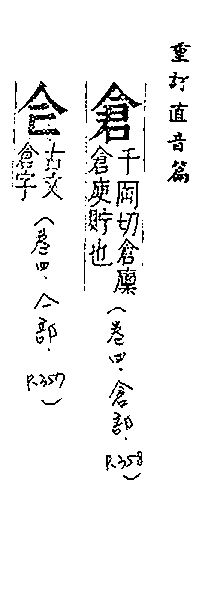 重訂直音篇
倉 千岡切倉廩
倉庾貯也 (卷四.倉部. P.358)
仺 古文
倉字 (卷四.人部. P.357)